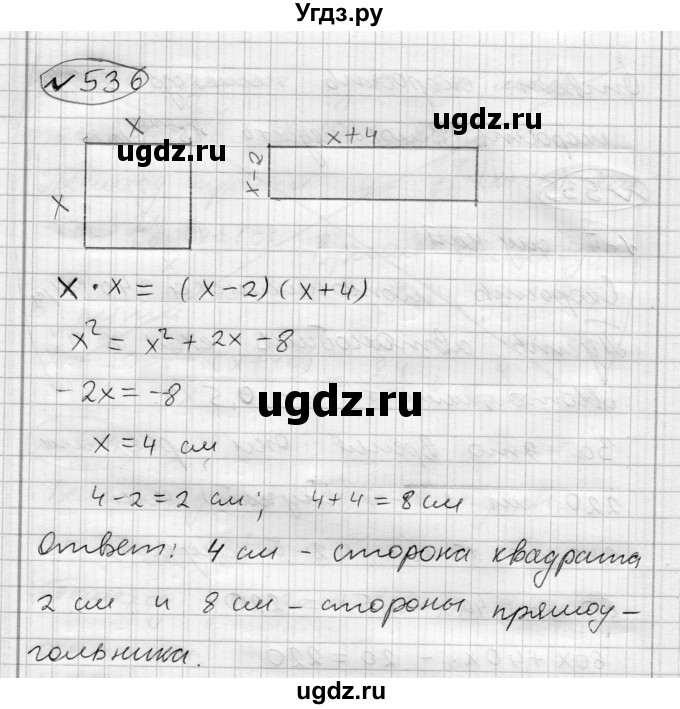 Угдз.ру
№ 536
x
ugdz.ru
ugdz.ru
x+4
x
x-2
x · x = (x-2)(x+4)
x² = x² + 2x - 8
-2x = -8
ugdz.ru
x = 4 см
4-2 = 2 см; 4+4 = 8 см
Ответ: 4 см - сторона квадрата
2 см и 8 см - стороны прямоу-
гольника.
ugdz.ru